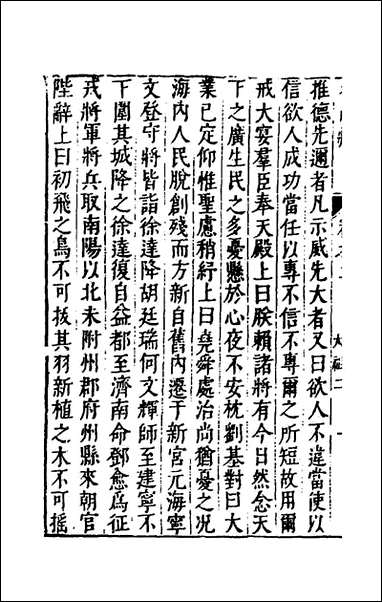 推德先邇者凡示威先大者又曰欲人不違當使以
信欲人成功當任以專不信不專爾之所短故用爾
戒大宴羣臣奉天殿上曰朕賴諸將有今日然念天
下之廣生民之多憂懸於心夜不安枕劉基對曰大
業已定仰惟聖慮稍紓上曰堯舜處治尚猶憂之况
海內人民脫創殘而方新自舊內遷于新宮元海寧
文登守將皆詣徐達降胡廷瑞何文輝師至建寧不
下圍其城降之徐達復自益都至濟南命鄧愈爲征
戎將軍將兵取南陽以北未附州郡府州縣來朝官
陛辭上曰初飛之鳥不可拔其羽新植之木不可搖